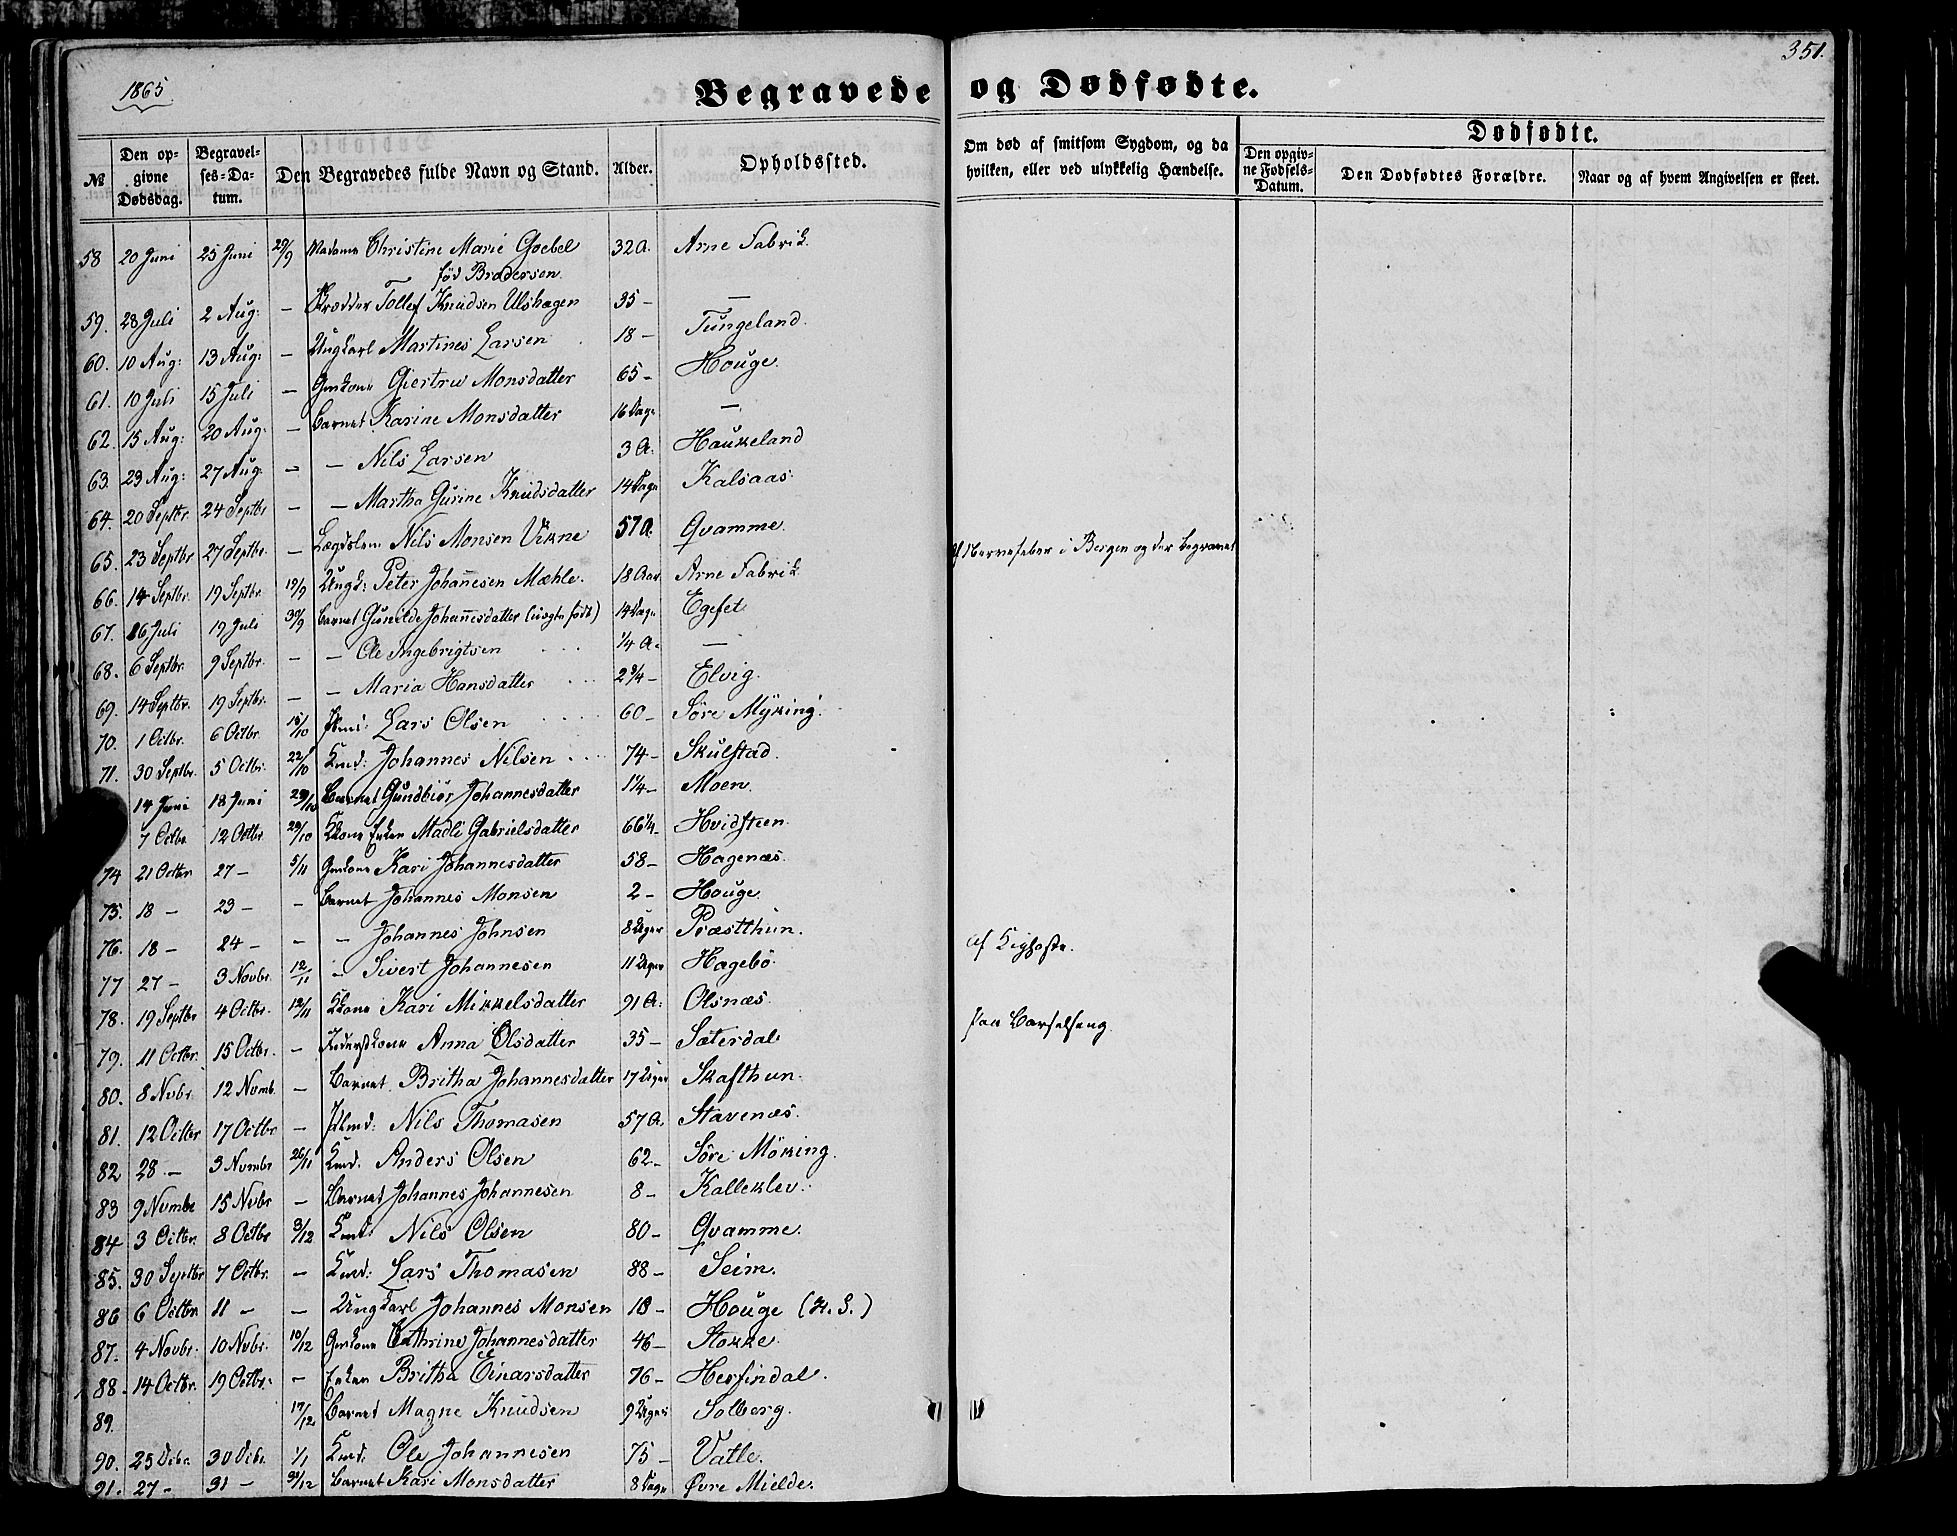 1865
351.
Begravede og Dødfødte.
№
Den opgivne Dødsdag.
Begravelses-Datum.
Den Begravedes fulde Navn og Stand.
Alder.
Opholdssted.
Om død af smitsom Sygdom, og da hvilken, eller ved ulykkelig Hændelse.
Dødfødte.
Den opgivne Fødsels-Datum.
Den Dødfødtes Forældre.
Naar og af hvem Angivelsen er skeet.
58 20 Juni 25 Juni 29/9 Madame Christine Marie Goebel 32 A. Arne Fabrik
fød Brodersen
59. 28 Juli 2 Aug: — Skrædder Tollef Knudsen Ulshagen 35 — —
60. 10 Aug: 13 Aug: — Ungkarl Martines Larsen 18 — Tungeland.
61. 10 Juli 15 Juli — Gmkone Giertru Monsdatter 65 — Houge.
62. 15 Aug: 20 Aug: — Barnet Karine Monsdatter 16 Dage —
63. 23 Aug: 27 Aug: — — Nils Larsen 3 A. Haukeland
64. 20 Septbr. 24 Septbr — — Martha Gurine Knudsdatter 14 Dage Kalsaas.
65. 23 Septbr 27 Septbr. — Lægdslem Nils Monsen Vikne 57 A. Qvamme.
66. 14 Septbr. 19 Septbr. 19/9 Ungk: Peter Johannesen Mæhle. 18 Aar Arne Fabrik af Nervefeber i Bergen og der begravet
67. 16 Juli 19 Juli 30/9 Barnet Gunilde Johannesdatter (uægte født) 14 Dage Egefet.
68. 6 Septbr. 9 Septbr. — — Ole Ingebrigtsen 1/4 A. —
69. 14 Septbr. 19 Septbr. — — Maria Hansdatter 2 3/4 — Elvig.
70. 1 Octbr. 6 Octbr. 15/10 Lars Olsen 60 — Söre Myking.
71. 30 Septbr. 5 Octbr. 22/10 Kmd: Johannes Nilsen 74 — Skulstad.
14 Juni 18 Juni 29/10 Barnet Gundbiør Johannesdatter 1 1/4 — Moen.
7 Octbr. 12 Octbr. 29/10 Kkone Enken Madli Gabrielsdatter 66 1/4 — Hvidsteen.
74 21 Octbr 27 — 5/11 Gmkone Kari Johannesdatter 58 — Hagenæs.
75. 18 — 23 — — Barnet Johannes Monsen 2 — Houge.
76. 18 — 24 — — — Johannes Johnsen 8 Uger Præstthun. af Kighoste.
77 27 — 3 Novbr. 12/11 — Sivert Johannesen 11 Uger Hagebö.
78. 19 Septbr 4 Octbr. 12/11 Kkone Kari Mikkelsdatter 91 A. Olsnæs.
79. 11 Octbr. 15 Octbr. — Anna Olsdatter 35 — Sæterdal paa Barselseng.
80. 8 Nvbr. 12 Nvmb. — Barnet Britha Johannesdatter 17 Uger Skafthun.
81. 12 Octbr 17 Octbr. — Nils Thomasen 57 A. Stavenæs.
82 28 — 3 Nvmbr 26/11 Kmd. Anders Olsen 62 — Söre Möking.
83 9 Nvmbr 15 Nvbr — Barnet Johannes Johannesen 8 — Kalleklev.
84 3 Octbr. 8 Octbr 3/12 Kmd: Nils Olsen 80 — Qvamme.
85. 30 Septbr 7 Octbr. — Kmd: Lars Thomasen 88 — Seim.
86 6 Octbr. 11 — — Ungkarl Johannes Monsen 18 — Houge (H. S.)
87. 4 Novbr. 10 Nvbr. 10/12 Gmkone Cathrine Johannesdatter 46 — Stokke.
88. 14 Octbr. 19 Octbr. — Enken Britha Einarsdatter 76 — Herfindal.
89. 17/12 Barnet Magne Knudsen 9 Uger Solberg.
90. 25 Dcbr. 30 Dcbr. 1/1 Kmd. Ole Johannesen 75 — Vatle.
91. 27 — 31 — 31/12 Barnet Kari Monsdatter 8 Dage Øvre Mielde.